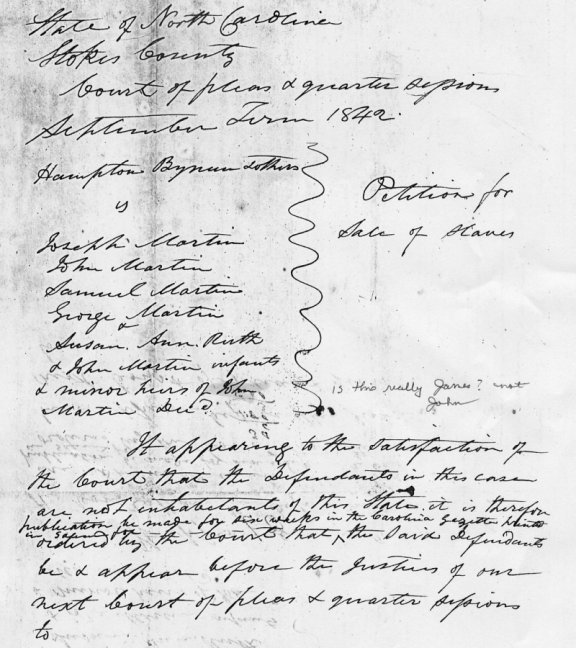 State of North Carolina
Stokes County
Court of pleas & quarter sessions
September Term 1842.
Hampton Bynum & others
vs
Petition for
Sale of Slaves
Joseph Martin
John Martin
Samuel Martin
George Martin
&
Susan. Ann. Ruth
& John Martin infants
& minor heirs of John
Martin Dec'd.
is this really Janes? not
John
It appearing to the satisfaction of
the Court that the Defendants in this case
are not inhabitants of this State it is therefore
publication be made for six weeks in the Carolina Gazette printed
in
ordered by the Court that ^ the said Defendants
be & appear before the Justices of our
next Court of pleas & quarter sessions
to